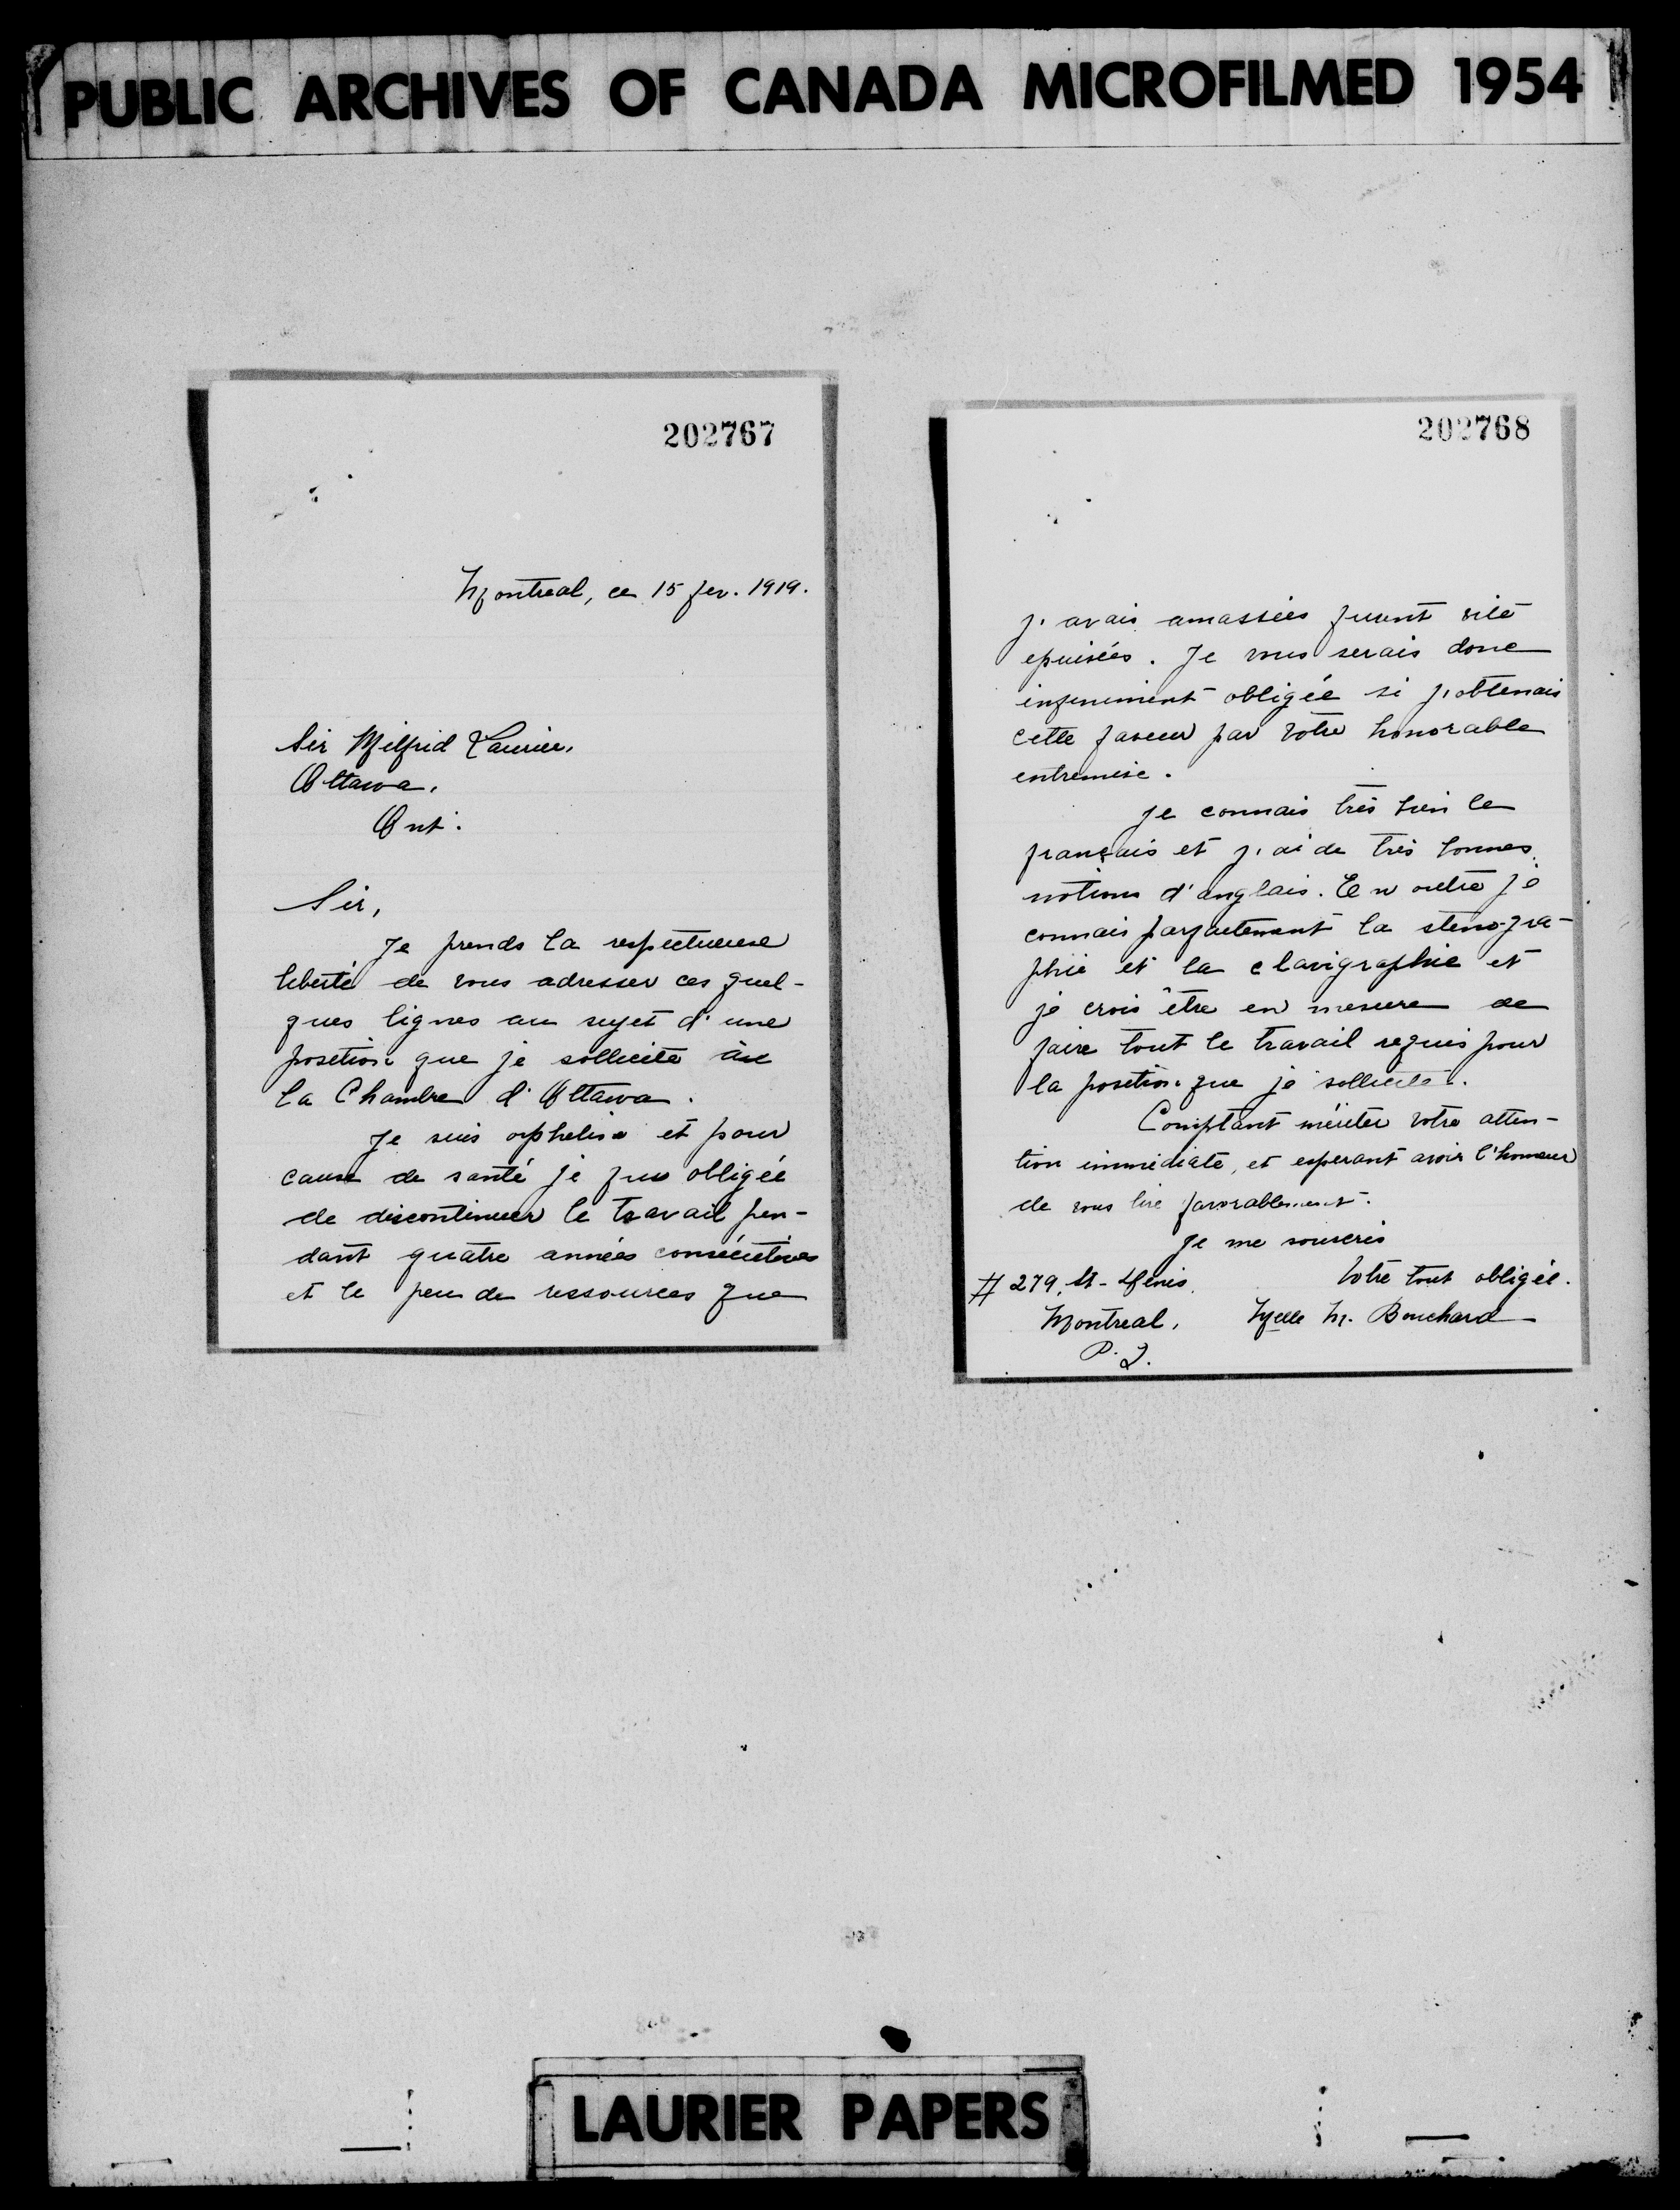 PUBLIC ARCHIVES OF CANADA MICROFILMED 1954
202767
Montreal, ce 15 fev. 1919.
Sir Wilfrid Laurier,
Ottawa,
Ont.
Sir,
Je prends la respectueuse
liberté de vous adresser ces quel-
ques lignes au sujet d'une
position que je sollicite à
la Chambre d'Ottawa.
Je suis orpheline et pour
cause de santé je fus obligée
de discontinuer le travail pen-
dant quatre années consécutives
et le peu de ressources que
202768
j'avais amassées furent vite
epuisées. Je vous serais donc
infiniment obligée si j'obtenais
cette faveur par votre honorable
entremise.
Je connais très bien le
français et j'ai de très bonnes
notions d'anglais. En outre je
connais parfaitement la sténogra-
phie et la clavigraphie et
je crois être en mesure de
faire tout le travail requis pour
la position que je sollicite.
Comptant mériter votre atten-
tion immédiate, et esperant avoir l'honneur
de vous lire favorablement.
Je me souscris
Votre tout obligée.
# 279, St-Denis.
Montreal, Melle M. Bouchard
P. Q.
LAURIER PAPERS